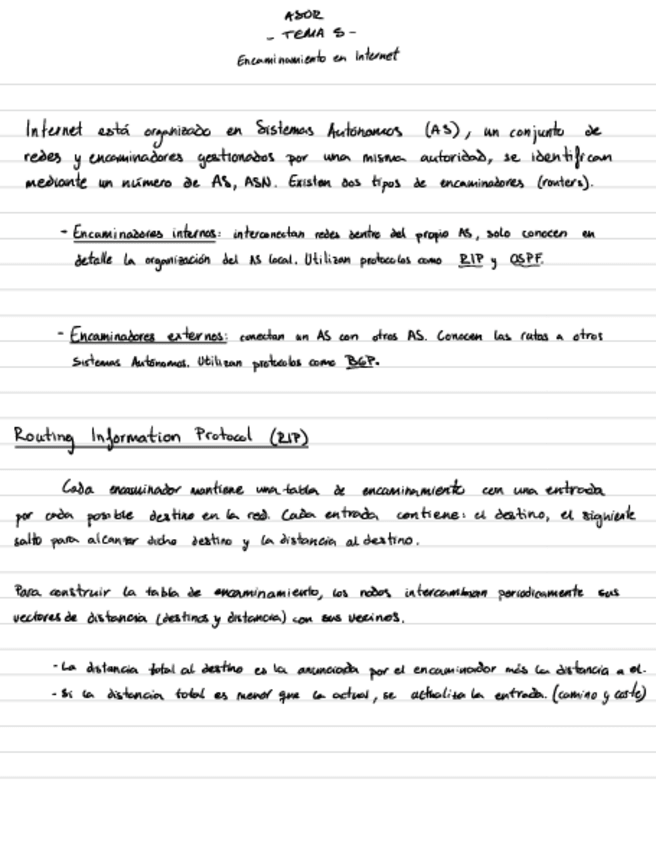 ASOR
- TEMA 5 -
Encaminamiento en Internet
Internet está organizado en Sistemas Autónomos (AS), un conjunto de
redes y encaminadores gestionados por una misma autoridad, se identifican
mediante un número de AS, ASN. Existen dos tipos de encaminadores (routers).
- Encaminadores internos: interconectan redes dentro del propio AS, solo conocen en
detalle la organización del AS local. Utilizan protocolos como RIP y OSPF.
- Encaminadores externos: conectan un AS con otros AS. Conocen las rutas a otros
Sistemas Autónomos. Utilizan protocolos como BGP.
Routing Information Protocol (RIP)
Cada encaminador mantiene una tabla de encaminamiento con una entrada
por cada posible destino en la red. Cada entrada contiene: el destino, el siguiente
salto para alcanzar dicho destino y la distancia al destino.
Para construir la tabla de encaminamiento, los nodos intercambian periodicamente sus
vectores de distancia (destinos y distancia) con sus vecinos.
- La distancia total al destino es la anunciada por el encaminador más la distancia a el.
- Si la distancia total es menor que la actual, se actualiza la entrada. (camino y coste)